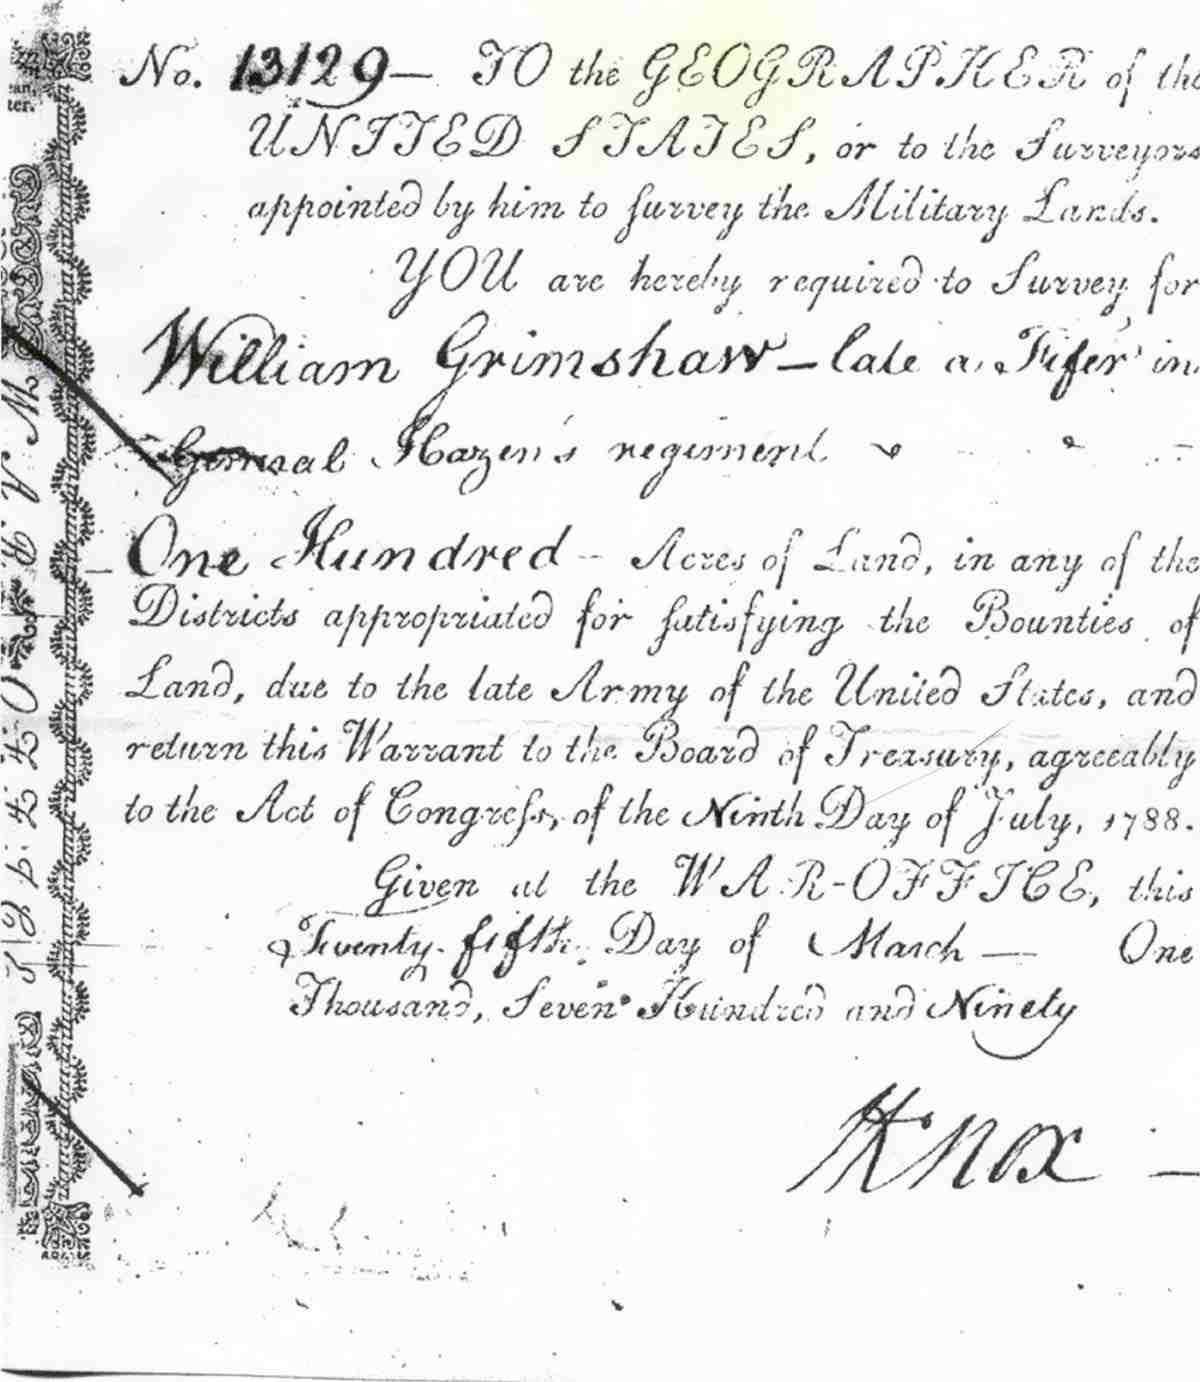 No. 13129 — TO the GEOGRAPHER of the
UNITED STATES, or to the Surveyors
appointed by him to survey the Military Lands.
YOU are hereby required to Survey for
William Grimshaw — late a Fifer in
General Hazen's regiment
One Hundred — Acres of Land, in any of the
Districts appropriated for satisfying the Bounties of
Land, due to the late Army of the United States, and
return this Warrant to the Board of Treasury, agreeably
to the Act of Congress, of the Ninth Day of July, 1788.
Given at the WAR-OFFICE, this
Twenty fifth Day of March — One
Thousand, Seven Hundred and Ninety
HKnox —